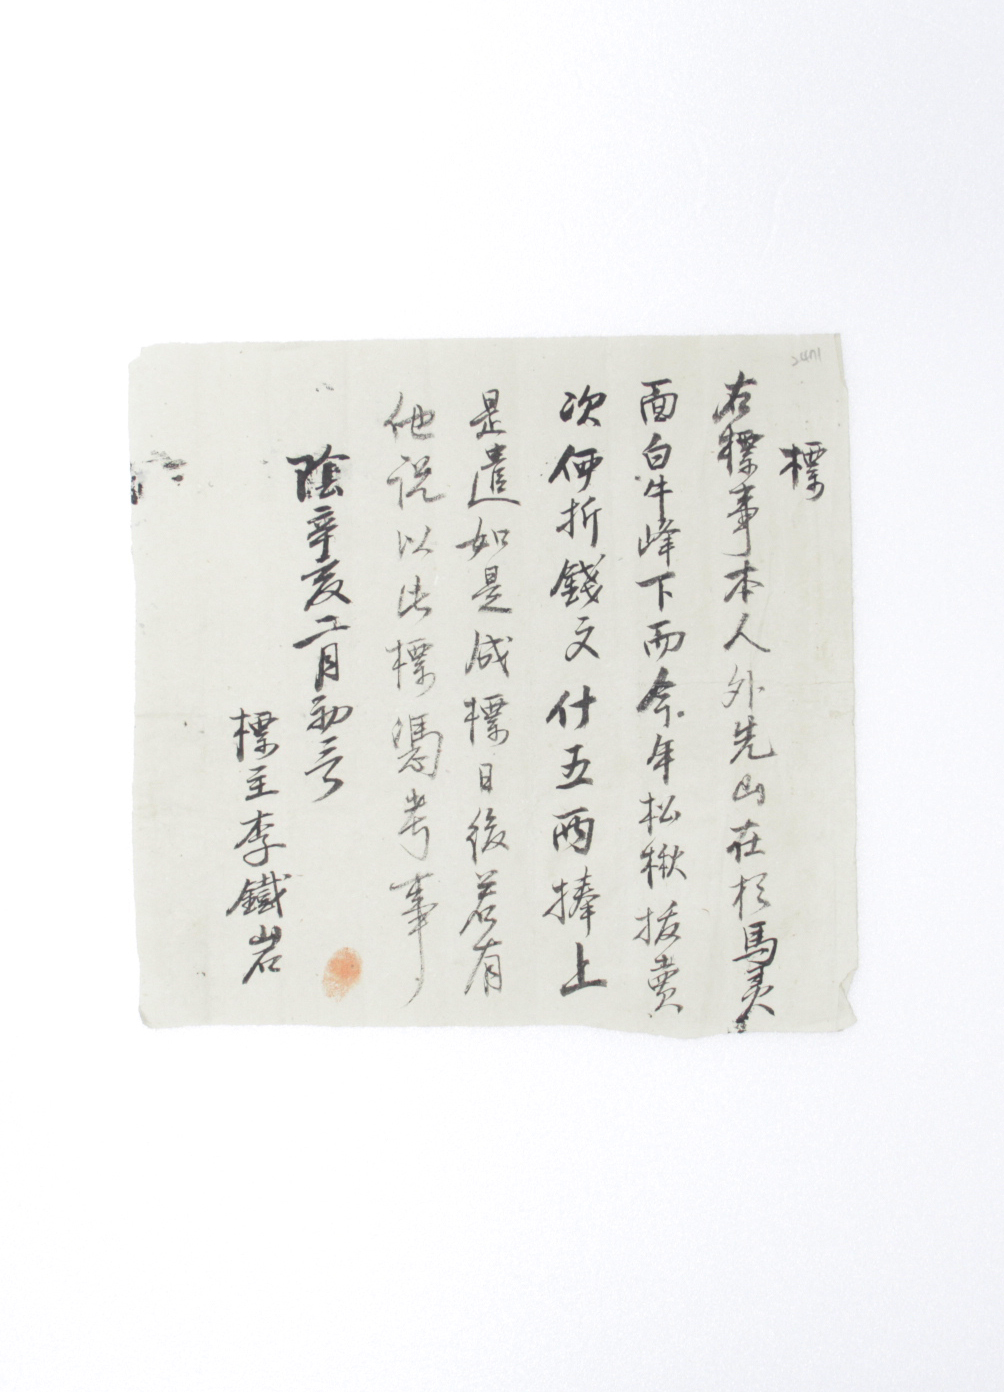 標
右標事本人外先山在於馬灵
面白牛峰下而今年松楸拔賣
次価折錢文什五両捧上
是遣如是成標日後若有
他說以此標憑考事
陰辛亥二月初三
標主李鐵岩
2471